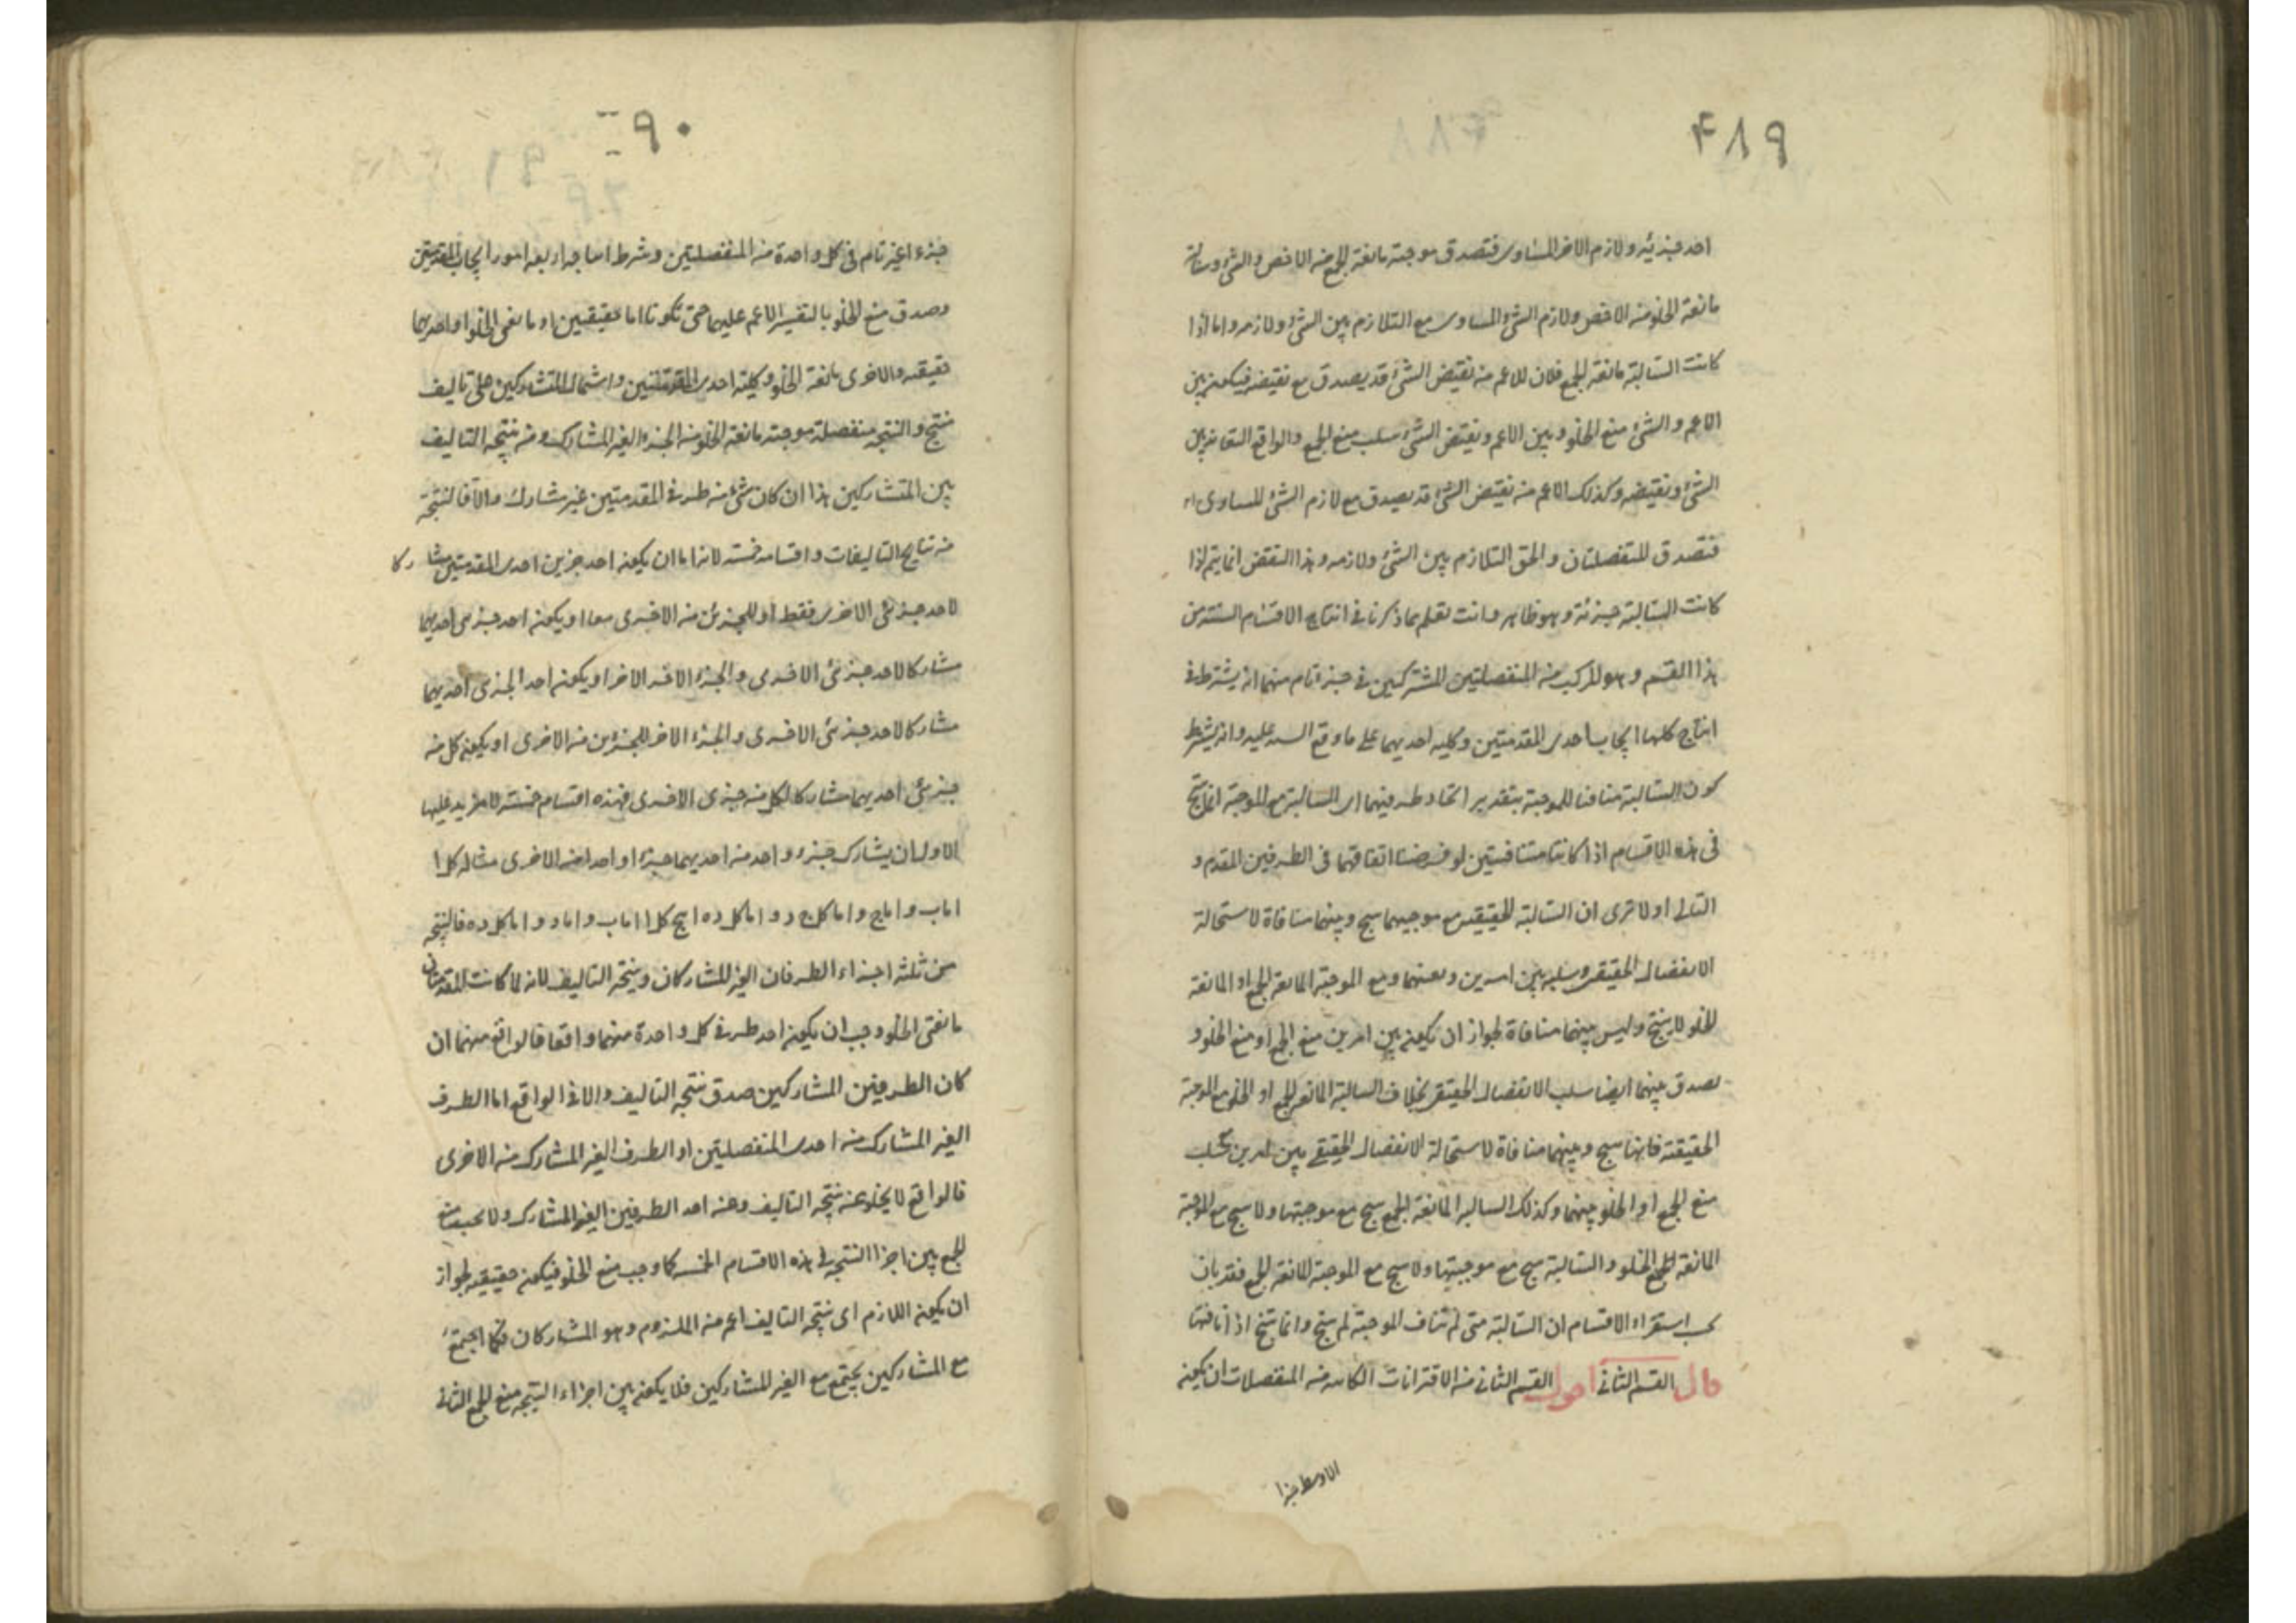 ۴۸۹
احد جزئيه ولازم الاخر المساوى فتصدق موجبة مانعة الجمع من الاخص والشئ وسالبة
مانعة الخلو من الاخص ولازم الشئ المساوى مع التلازم بين الشئ ولازمه واما اذا
كانت السالبة مانعة الجمع فلان للاعم من نقيض الشئ قد يصدق مع نقيضه فيكون بين
الاعم والشئ منع الخلو وبين الاعم ونقيض الشئ سلب منع الجمع والواقع التعاند بين
الشئ ونقيضه وكذلك الاعم من نقيض الشئ قد يصدق مع لازم الشئ المساوى
فتصدق المنفصلتان والحق التلازم بين الشئ ولازمه وهذا النقض انما يتم اذا
كانت السالبة جزئة وهو ظاهر وانت تعلم بما ذكرنا فى انتاج الاقسام الستة من
هذا القسم وهو المركب من المنفصلتين المشتركتين فى جزء تام منهما انه يشترط فى
انتاج كلها ايجاب احدى المقدمتين وكليه احديهما على ما وقع عليه وانه يشترط
كون السالبة منافيا للموجبة بتقدير اتحاد طرفيهما اى السالبة مع الموجبة انما ينتج
فى هذه الاقسام اذا كانتا متنافيتين لو فرضنا اتفاقهما فى الطرفين المقدم و
التالى اولا ترى ان السالبة الحقيقية مع موجبهما ينتج وبينهما منافاة لاستحالة
الانفصال الحقيقى وسلبه بين امرين ومع الموجبة المانعة الجمع او المانعة
الخلو لا ينتج وليس بينهما منافاة لجواز ان يكون بين امرين منع الجمع او منع الخلو و
يصدق بينهما ايضا سلب الانفصال الحقيقى بخلاف السالبة المانعة الجمع او الخلو مع الموجبة
الحقيقية فانها ينتج وبينهما منافاة لاستحالة الانفصال الحقيقى بين امرين سلب
منع الجمع او الخلو بينهما وكذلك السالبة المانعة الجمع ينتج مع موجبتها ولا ينتج مع الموجبة
المانعة الخلو والسالبة ينتج مع موجبتها ولا ينتج مع الموجبة المانعة الجمع فقد بان
بحسب استقراء الاقسام ان السالبة متى لم تناف الموجبة لم ينتج وانما تنتج اذا نافتها
قال القسم الثانى اقول القسم الثانى من الاقترانات الكائنة من المنفصلات ان يكون
الاوسط جزءا
۴۹۰
جزءا غير تام فى كل واحدة من المنفصلتين وشرط انتاجه اربعة امور ايجاب المقدمتين
وصدق منع الخلو بالتفسير الاعم عليهما حتى تكونا اما حقيقيتين او مانعتى الخلو او احديهما
حقيقية والاخرى مانعة الخلو وكلية احدى المقدمتين واشتمال المتشاركين على تاليف
منتج والنتيجة منفصلة موجبة مانعة الخلو من الجزء الغير المشارك ومن نتيجة التاليف
بين المتشاركين هذا ان كان شئ من طرفى المقدمتين غير مشارك والا فالنتيجة
من نتايج التاليفات واقسامه خمسة لانه اما ان يكون احد جزئين احدى المقدمتين مشاركا
لاحد جزئى الاخرى فقط او للجزئين من الاخرى معا او يكون احد جزئى احديهما
مشاركا لاحد جزئى الاخرى والجزء الاخر الاخر او يكون احد الجزئى احديهما
مشاركا لاحد جزئى الاخرى والجزء الاخر للجزئين من الاخرى او يكون كل من
جزئى احديهما مشاركا لكل من جزئى الاخرى فهذه اقسام خمسة لا مزيد عليها
الاول ان يشارك جزء واحد من احديهما جزءا واحدا من الاخرى مثاله كل ا
اما ب واما ج واما كل ج د واما كل د ه ينتج كل ا اما ب واما د واما كل د ه فالنتيجة
من ثلثة اجزاء الطرفان الغير المشاركان ونتيجة التاليف لانه لما كانت المقدمتان
مانعتى الخلو وجب ان يكون احد طرفى كل واحدة منهما واقعا فالواقع منهما ان
كان الطرفين المشاركين صدق نتيجة التاليف والا فالواقع اما الطرف
الغير المشارك من احدى المنفصلتين او الطرف الغير المشارك من الاخرى
فالواقع لا يخلو عن نتيجة التاليف وعن احد الطرفين الغير المشارك ولا يجب منع
الجمع بين اجزاء النتيجة فى هذه الاقسام الخمسة كما وجب منع الخلو فيكون حقيقية لجواز
ان يكون اللازم اى نتيجة التاليف اعم من الملزوم وهو المشاركان فكما اجتمع
مع المشاركين يجتمع مع الغير المشاركين فلا يكون بين اجزاء النتيجة منع الجمع الثانى